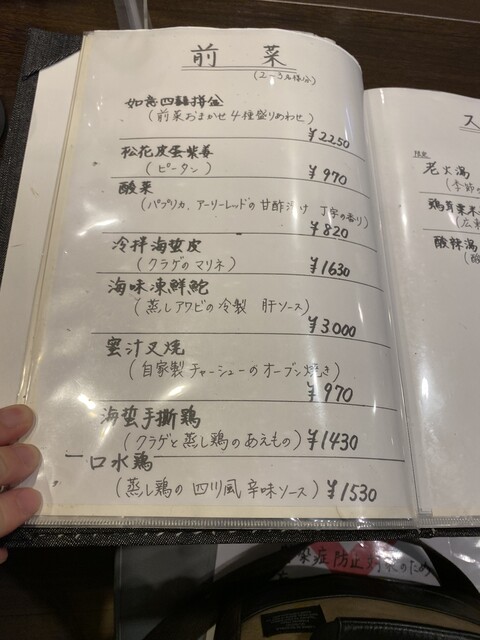 前菜
(2〜3名様分)
如意四囍拼盆
(前菜おまかせ4種盛りあわせ)
¥2250
松花皮蛋紫姜
(ピータン)
¥970
酸菜
(パプリカ、アーリーレッドの甘酢漬け 丁字の香り)
¥820
冷拌海蜇皮
(クラゲのマリネ)
¥1630
海味凍鮮鮑
(蒸しアワビの冷製 肝ソース)
¥3000
蜜汁叉焼
(自家製チャーシューのオーブン焼き)
¥970
海蜇手撕鶏
(クラゲと蒸し鶏のあえもの) ¥1430
口水鶏
(蒸し鶏の四川風辛味ソース) ¥1530
ス
老火湯
(季節
鶏茸粟米
(広東
酸辣湯
(酸
染症防止対策のため